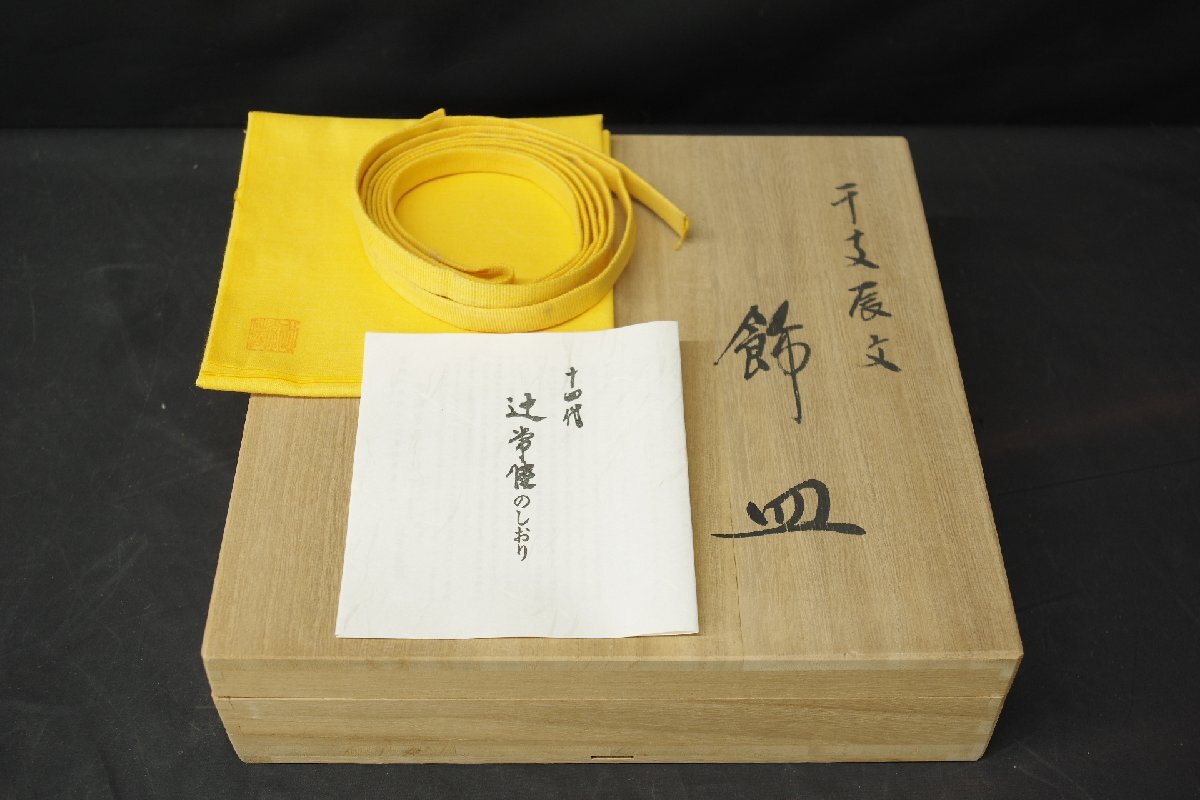 干支辰文
飾皿
十四代
辻常陸のしおり